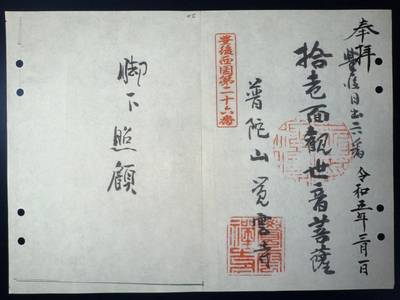 奉拝
豊後日出六番 令和五年三月一日
拾壱面観世音菩薩
普陀山覚雲寺
豊後西国第二十六番
脚下照顧